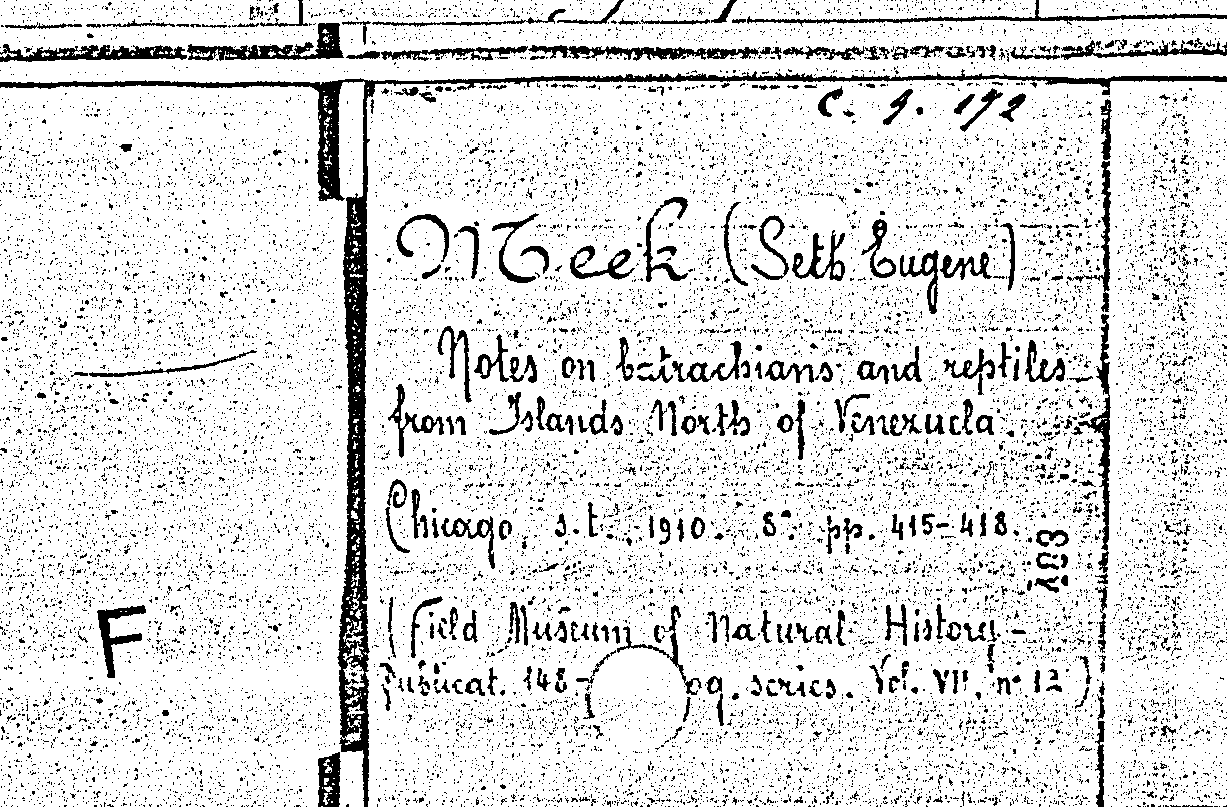 C. 9. 172
Meek (Seth Eugene)
Notes on batrachians and reptiles
from Islands North of Venezuela.
Chicago, s.t., 1910. 8°. pp. 415-418.
(Field Museum of Natural History -
Publicat. 148- series. Vol. VII, n° 12)
F